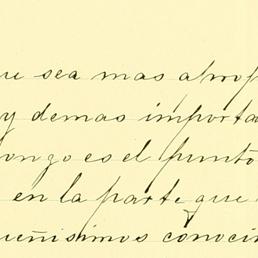 ue sea mas aprop
y demas importa
longo es el punto
en la parte que
ueñisimos conoci